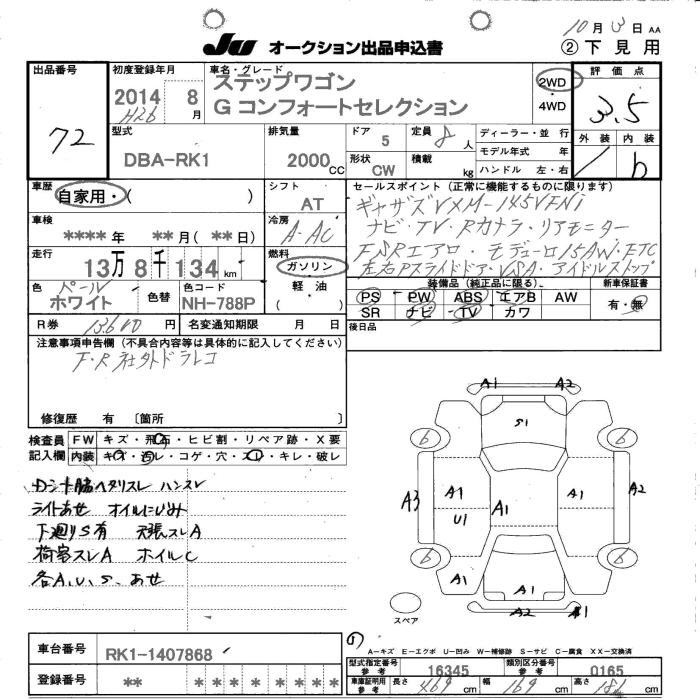 10月3日 AA
Ju オークション出品申込書 ②下見用
出品番号 72
初度登録年月 2014 8月 H26
車名・グレード ステップワゴン
G コンフォートセレクション
2WD
4WD
評価点 3.5
外装 内装
b
型式 DBA-RK1
排気量 2000cc
ドア 5
定員 8人
形状 CW
積載 kg
ディーラー・並行
モデル年式 年
ハンドル 左・右
車歴 自家用・( )
シフト AT
車検 ****年 **月(**日)
冷房 A-AC
走行 13万8千134km
燃料 ガソリン
軽油
( )
色 パール ホワイト
色替
色コード NH-788P
R券 円
名変通知期限 月 日
セールスポイント(正常に機能するものに限ります)
ギャザズVXM-145VFNi
ナビ・TV・Rカメラ・リアモニター
FSRエアロ・モデューロ15AW・ETC
左右Pスライドドア・VSA・アイドルストップ
装備品(純正品に限る)
PS PW ABS エアB AW
SR ナビ TV カワ
新車保証書
有・無
後日品
注意事項申告欄(不具合内容等は具体的に記入してください)
F・R社外ドラレコ
修復歴 有 〔箇所 〕
検査員記入欄
FW キズ・飛石・ヒビ割・リペア跡・X要
内装 キズ・汚レ・コゲ・穴・スレ・キレ・破レ
ロシート脇ヘタリスレ ハンスレ
ライトあせ オイルにじみ
下廻りS有 天張スレA
荷室スレA ホイルC
各A.U.S.あせ
A1 A2
S1
6 6
A3 A1 A1 A1 A2
U1
6 6
A1 A1
A2 A1
スペア
A-キズ E-エクボ U-凹み W-補修跡 S-サビ C-腐食 XX-交換済
車台番号 RK1-1407868
登録番号 ** * * * * * * *
型式指定番号 参考 16345
類別区分番号 参考 0165
車庫証明用 参考 長さ 469cm 幅 169cm 高さ 186cm